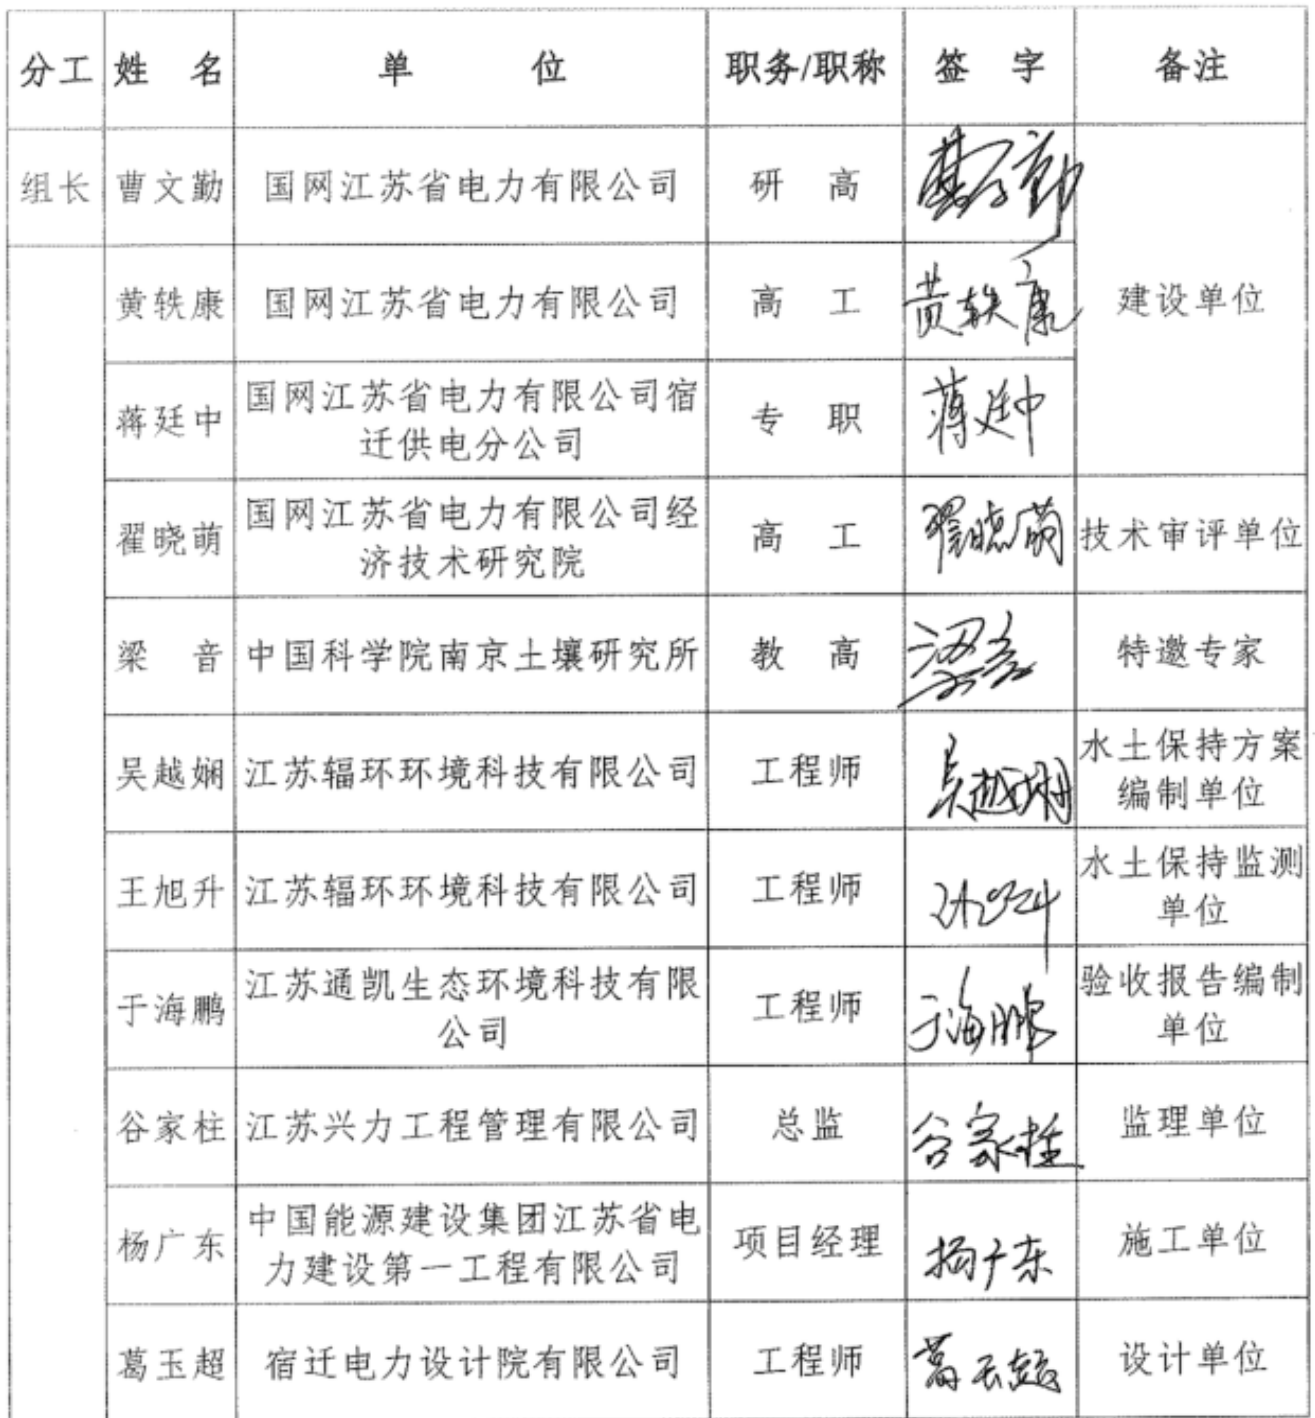 分工 姓 名 单 位 职务/职称 签 字 备注
组长 曹文勤 国网江苏省电力有限公司 研 高 曹文勤
黄轶康 国网江苏省电力有限公司 高 工 黄轶康 建设单位
蒋廷中 国网江苏省电力有限公司宿
迁供电分公司 专 职 蒋廷中
翟晓萌 国网江苏省电力有限公司经
济技术研究院 高 工 翟晓萌 技术审评单位
梁 音 中国科学院南京土壤研究所 教 高 梁音 特邀专家
吴越娴 江苏辐环环境科技有限公司 工程师 吴越娴 水土保持方案
编制单位
王旭升 江苏辐环环境科技有限公司 工程师 水土保持监测
单位
于海鹏 江苏通凯生态环境科技有限
公司 工程师 于海鹏 验收报告编制
单位
谷家柱 江苏兴力工程管理有限公司 总监 谷家柱 监理单位
杨广东 中国能源建设集团江苏省电
力建设第一工程有限公司 项目经理 杨广东 施工单位
葛玉超 宿迁电力设计院有限公司 工程师 葛玉超 设计单位